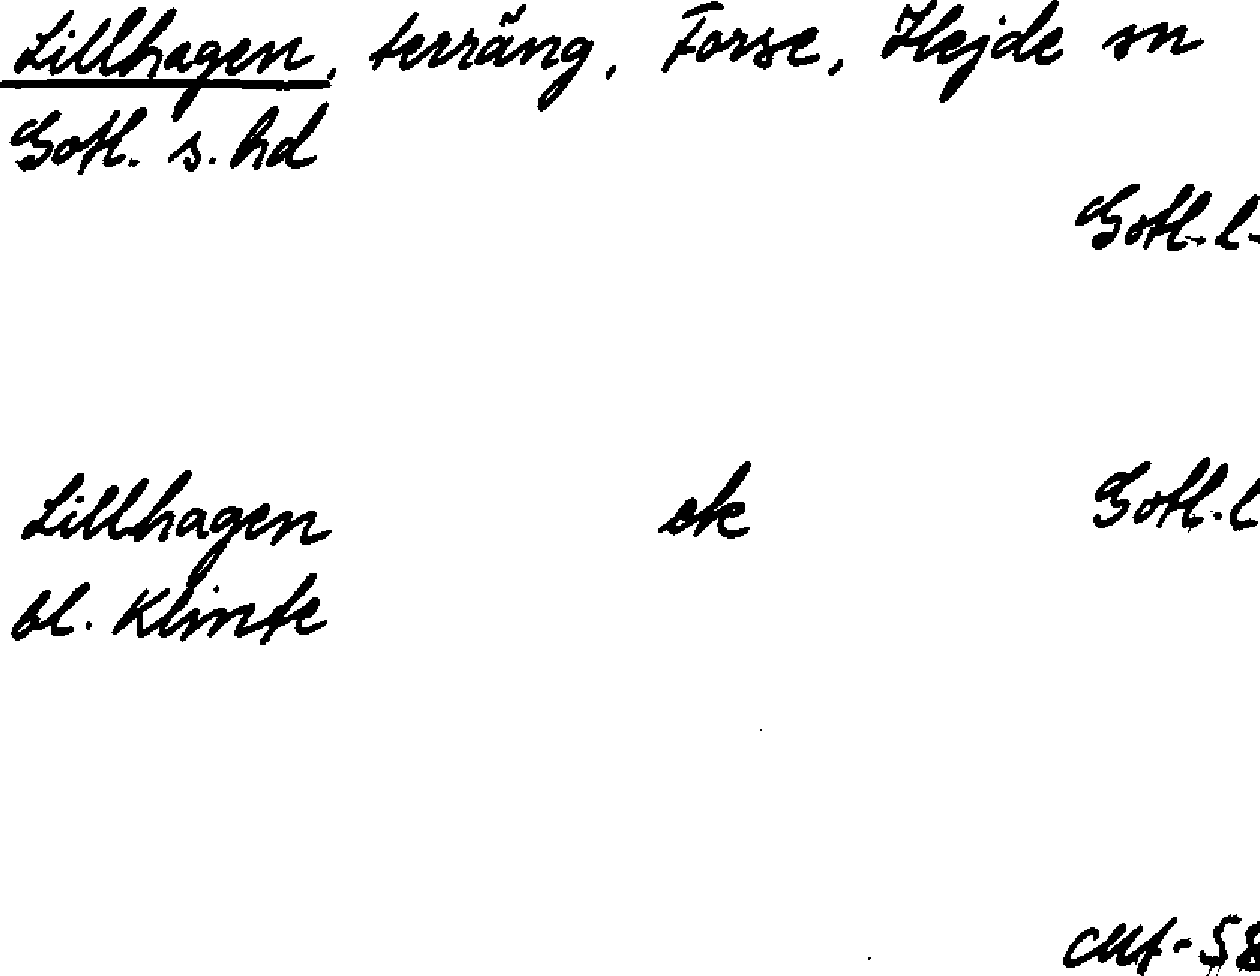 Lillhagen, terräng, Forse, Hejde sn
Gotl. s. hd
Gotl. l-
Lillhagen ek Gotl. l
bl. Klinte